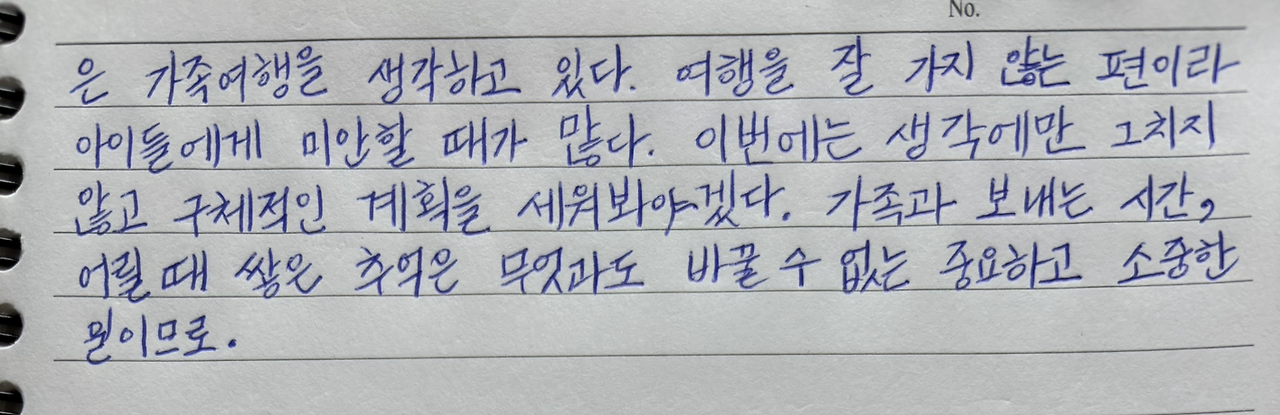 No.
은 가족여행을 생각하고 있다. 여행을 잘 가지 않는 편이라
아이들에게 미안할 때가 많다. 이번에는 생각에만 그치지
않고 구체적인 계획을 세워봐야겠다. 가족과 보내는 시간,
어릴 때 쌓은 추억은 무엇과도 바꿀 수 없는 중요하고 소중한
일이므로.